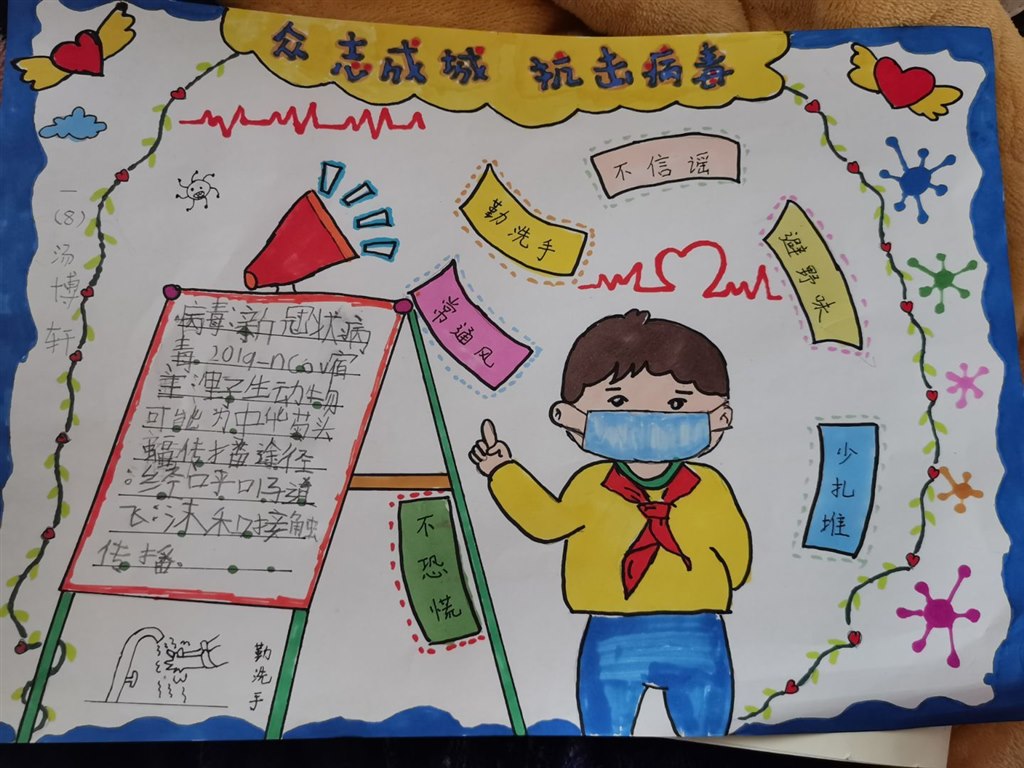 众志成城 抗击病毒
一(8)汤博轩
不信谣
勤洗手
避野味
常通风
少扎堆
不恐慌
病毒:新冠状病
毒 2019-ncov宿
主:野生动物
可能为中华菊头
蝠传播途径
:经口呼吸道
飞沫和接触
传播.
勤洗手